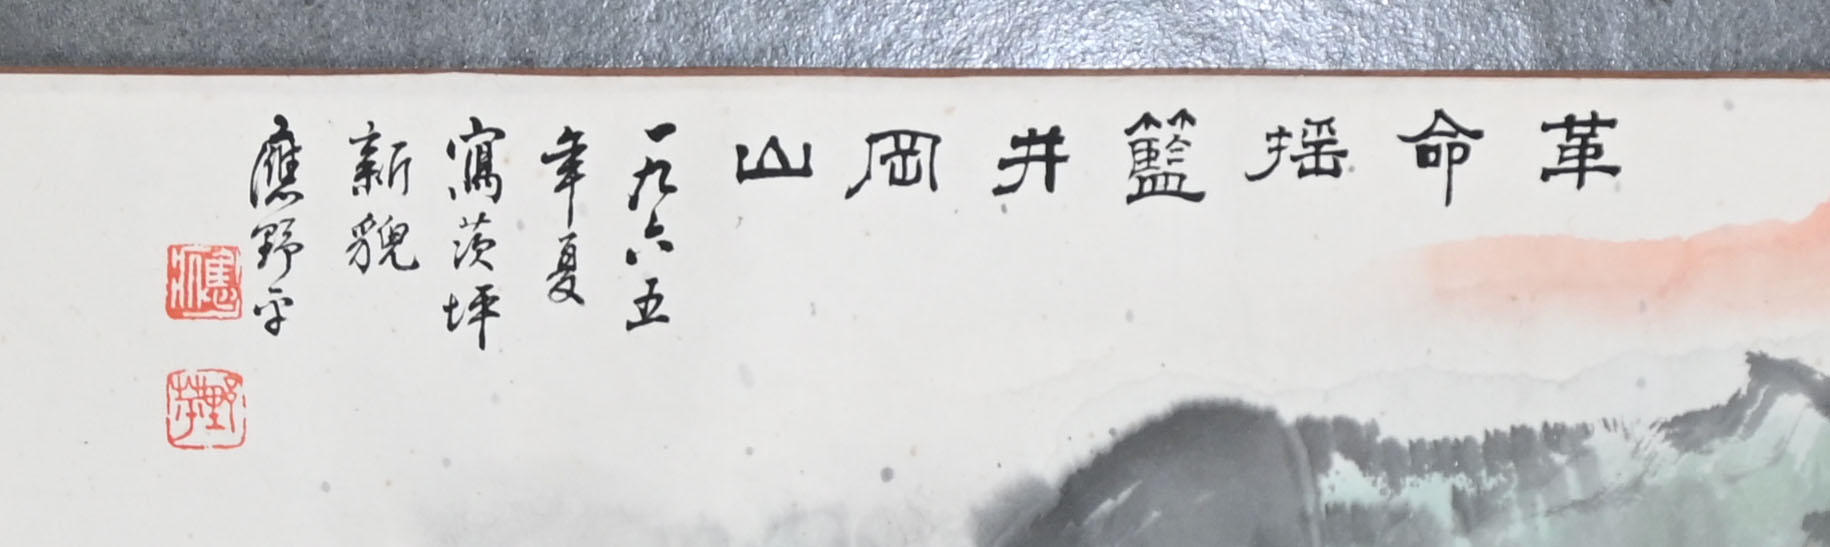 革命摇籃井岡山
一九六五
年夏
寫茨坪
新貌
應野平